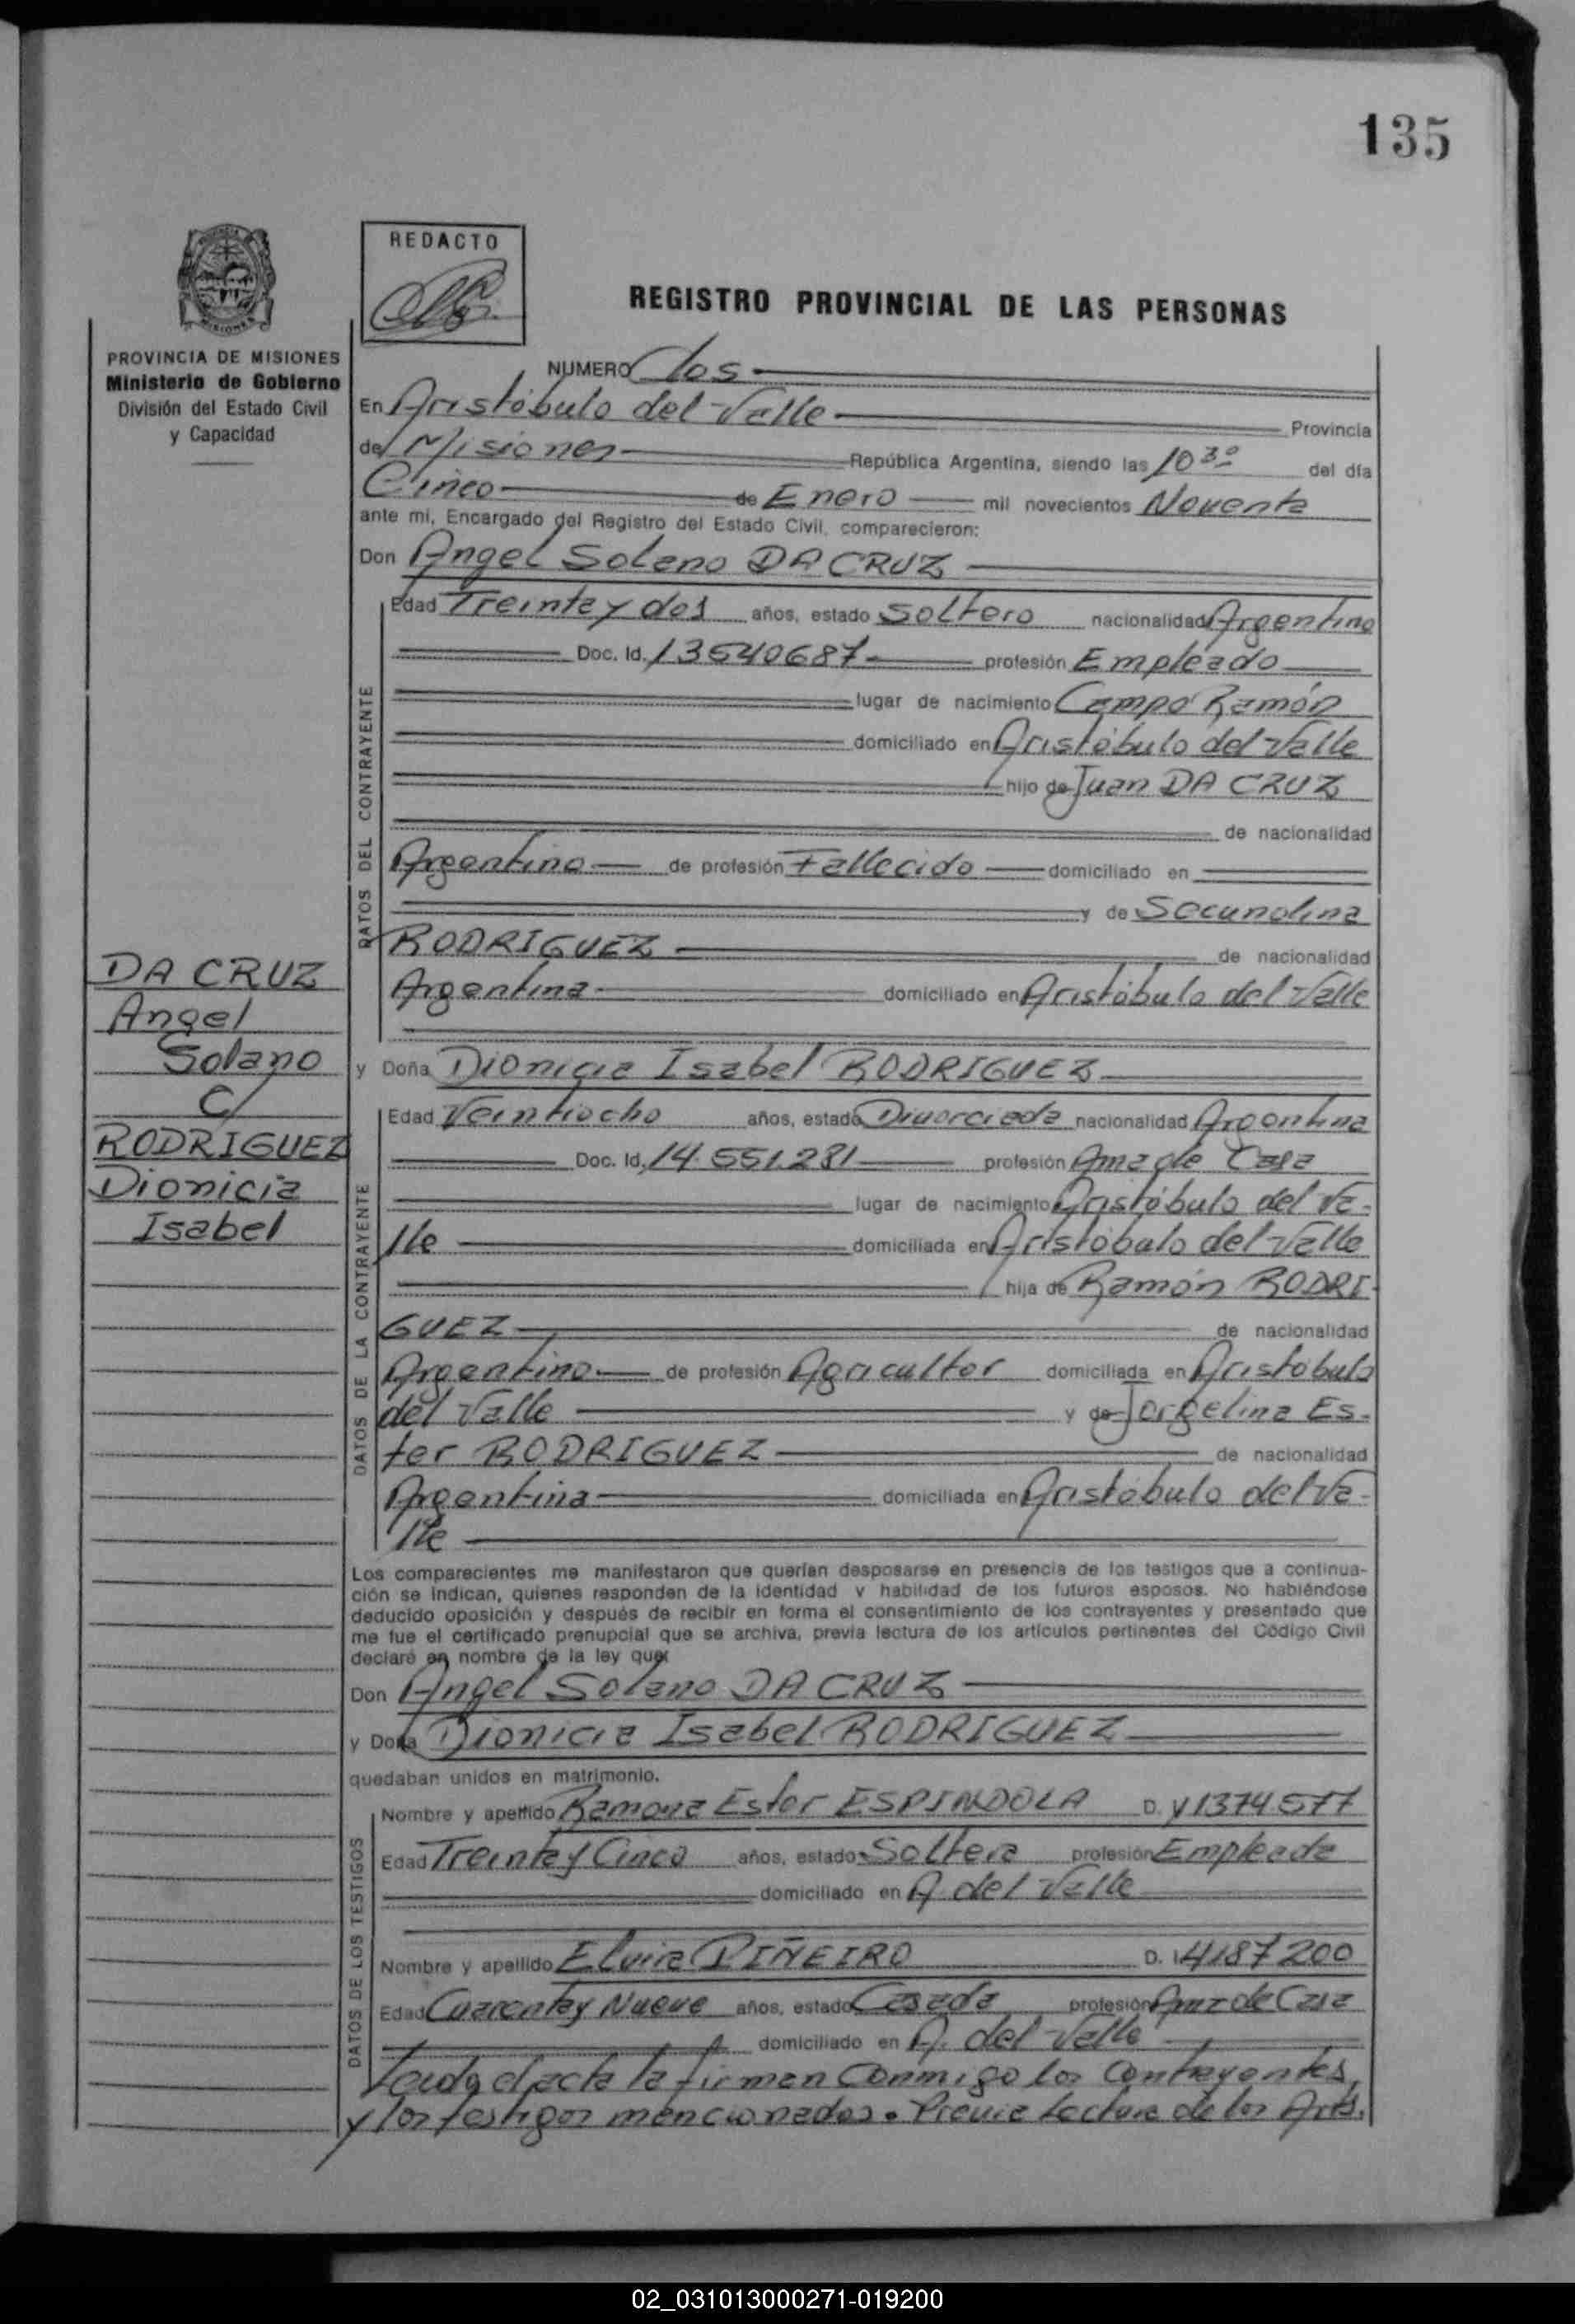 135
REDACTO
REGISTRO PROVINCIAL DE LAS PERSONAS
MISIONES
PROVINCIA DE MISIONES
Ministerio de Gobierno
División del Estado Civil
y Capacidad
NUMERO dos
En Aristóbulo del Valle Provincia
de Misiones República Argentina, siendo las 10 30 del día
Cinco de Enero mil novecientos Noventa
ante mi, Encargado del Registro del Estado Civil, comparecieron:
Don Angel Solano DA CRUZ
DATOS DEL CONTRAYENTE
Edad Treinta y dos años, estado Soltero nacionalidad Argentino
Doc. Id. 13540687 profesión Empleado
lugar de nacimiento Campo Ramón
domiciliado en Aristóbulo del Valle
hijo de Juan DA CRUZ
de nacionalidad
Argentino de profesión Fallecido domiciliado en
y de Secundina
RODRIGUEZ de nacionalidad
Argentina domiciliado en Aristóbulo del Valle
DA CRUZ
Angel
Solano
C/
RODRIGUEZ
Dionicia
Isabel
y Doña Dionicia Isabel RODRIGUEZ
DATOS DE LA CONTRAYENTE
Edad Veintiocho años, estado Divorciada nacionalidad Argentina
Doc. Id. 14.551.281 profesión Ama de Casa
lugar de nacimiento Aristóbulo del Va-
lle domiciliada en Aristóbulo del Valle
hija de Ramón RODRI-
GUEZ de nacionalidad
Argentino de profesión Agricultor domiciliada en Aristóbulo
del Valle y de Jorgelina Es-
ter RODRIGUEZ de nacionalidad
Argentina domiciliada en Aristóbulo del Va-
lle
Los comparecientes me manifestaron que querían desposarse en presencia de los testigos que a continua-
ción se indican, quienes responden de la identidad y habilidad de los futuros esposos. No habiéndose
deducido oposición y después de recibir en forma el consentimiento de los contrayentes y presentado que
me fue el certificado prenupcial que se archiva, previa lectura de los artículos pertinentes del Código Civil
declaré en nombre de la ley que:
Don Angel Solano DA CRUZ
y Doña Dionicia Isabel RODRIGUEZ
quedaban unidos en matrimonio.
DATOS DE LOS TESTIGOS
Nombre y apellido Ramona Ester ESPINDOLA D. 11374577
Edad Treinta y Cinco años, estado Soltera profesión Empleada
domiciliado en A. del Valle
Nombre y apellido Elvira PIÑEIRO D. 14187200
Edad Cuarenta y Nueve años, estado Casada profesión Ama de Casa
domiciliado en A. del Valle
Leída el acta la firman Conmigo los Contrayentes,
y los testigos mencionados. Previa Lectura de los Arts.
02_031013000271-019200